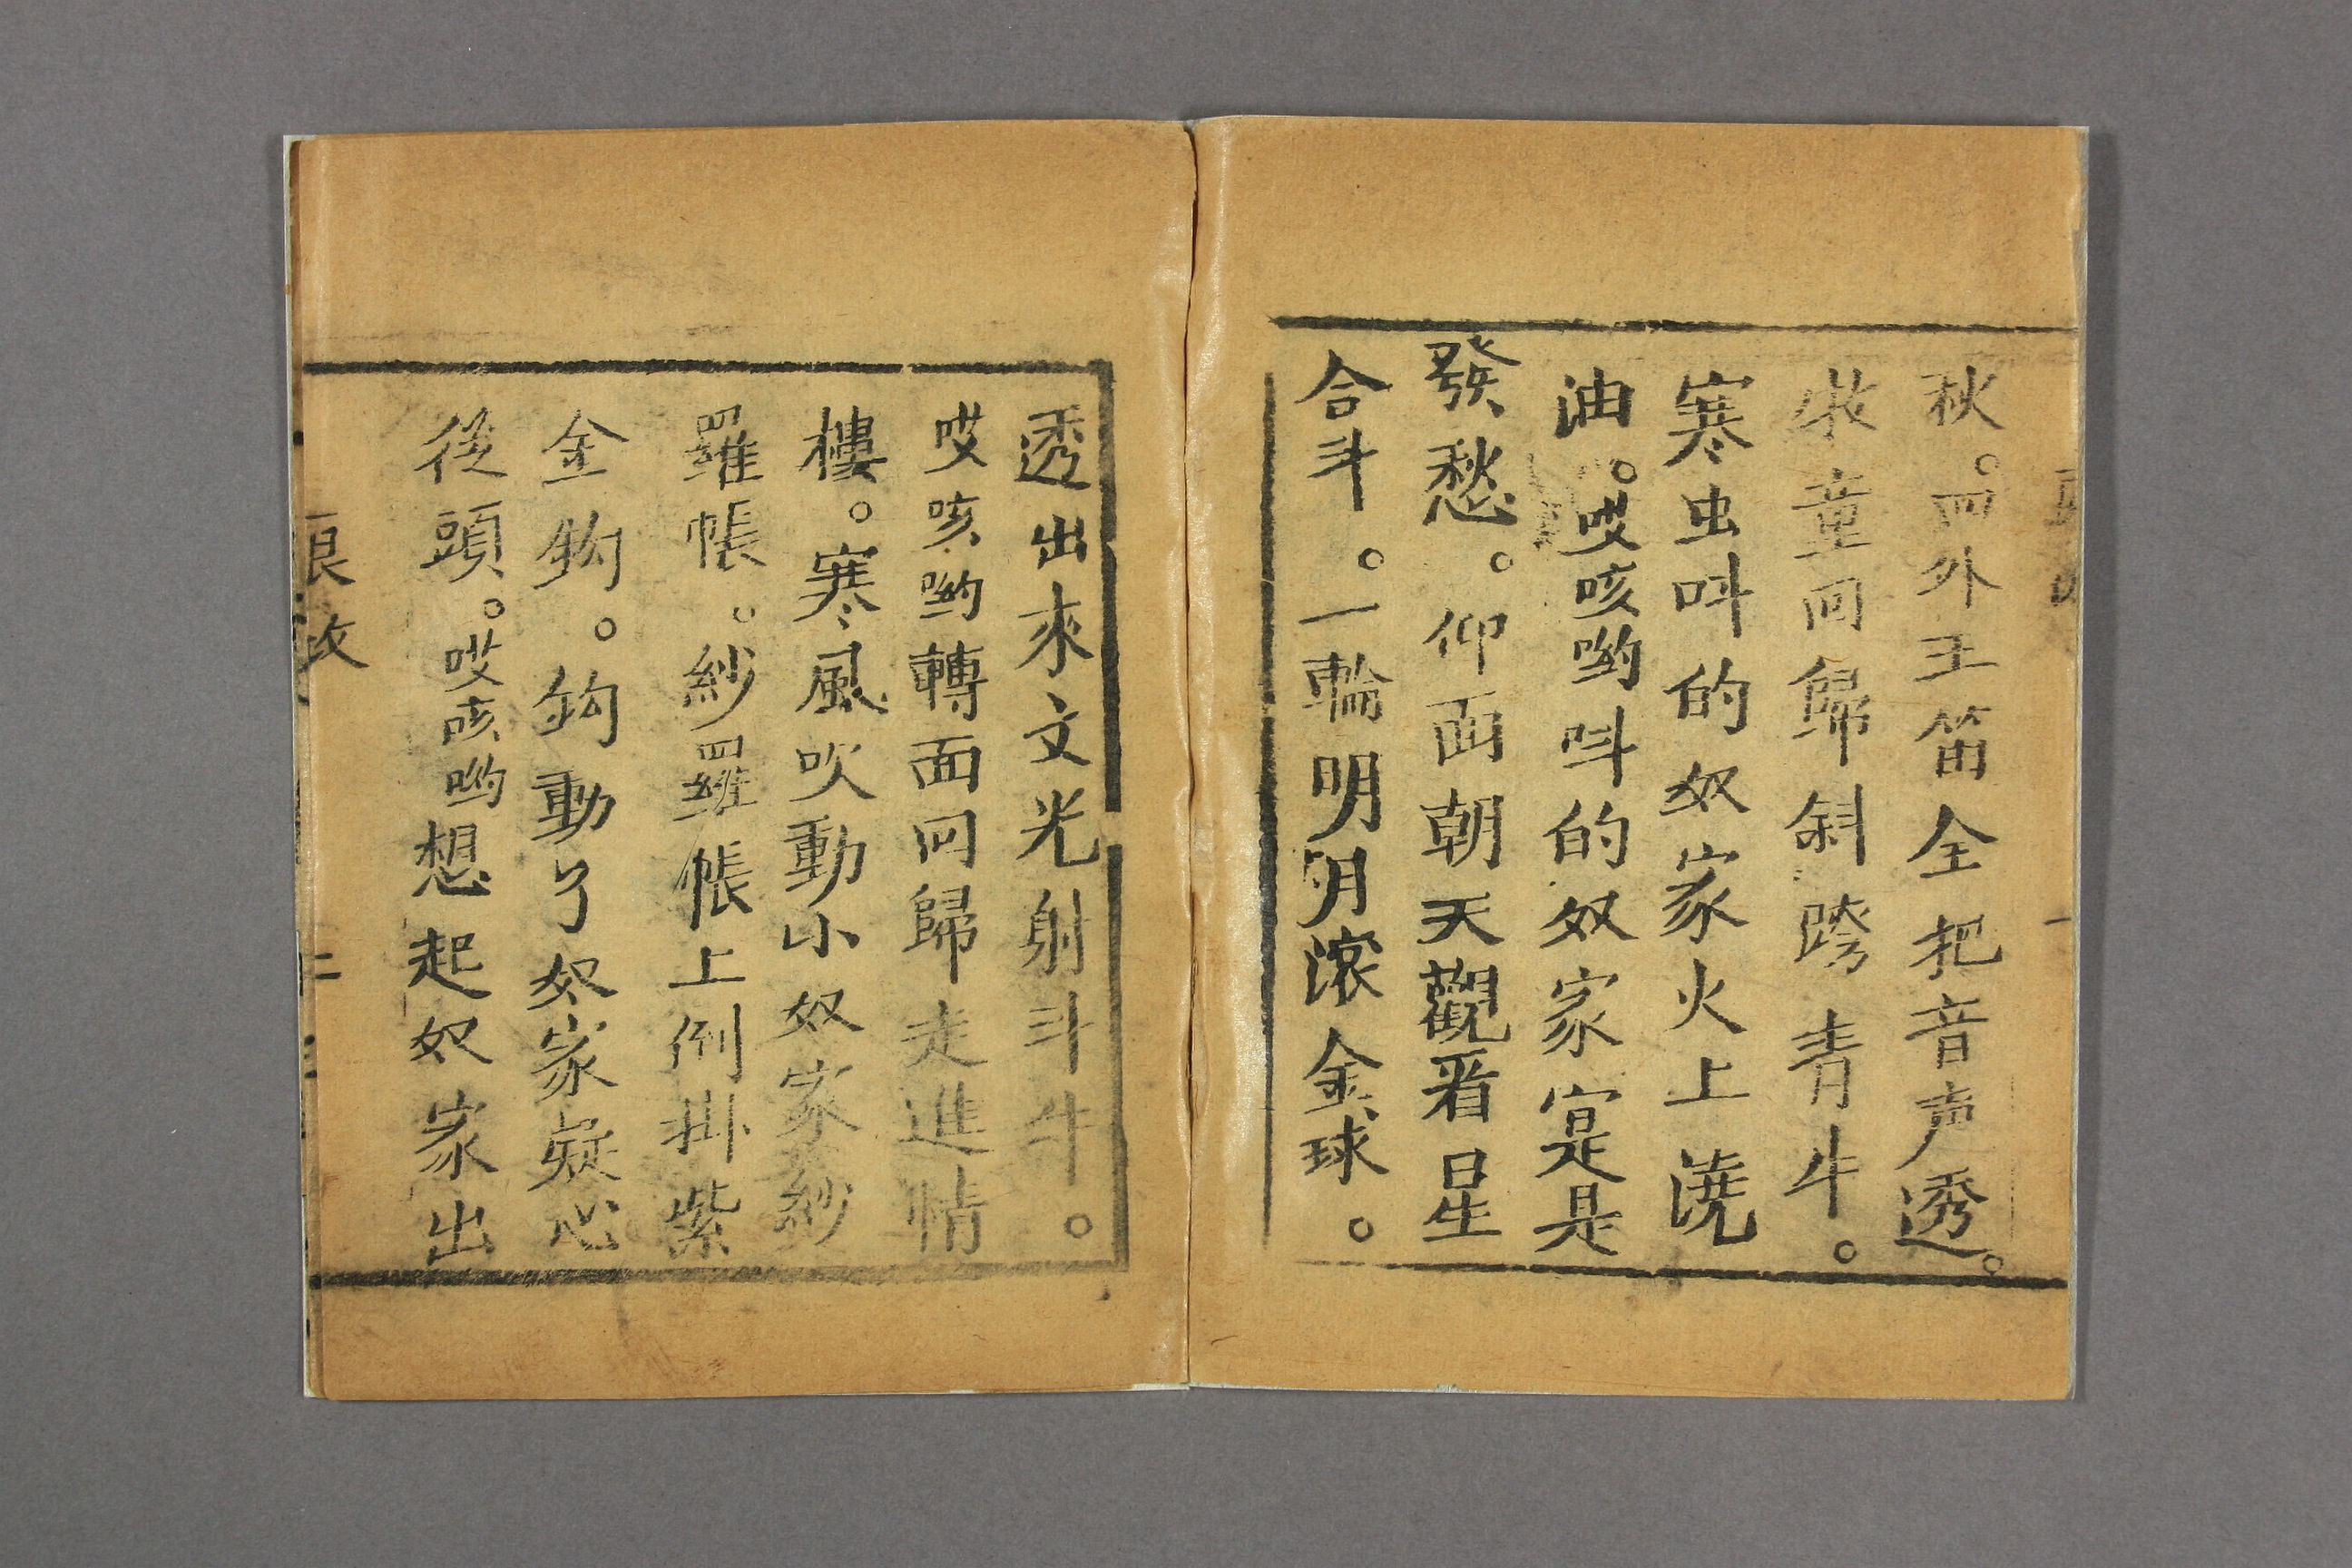 秋。四外玉笛全把音声透。
牧童回歸斜跨青牛。
寒虫呌的奴家火上澆
油。哎咳喲呌的奴家寔是
發愁。仰面朝天觀看星
合斗。一輪明月滚金球。
透出來文光射斗牛。
哎咳喲轉面回歸走進情
樓。寒風吹動小奴家紗
羅帳。紗羅帳上倒掛紫
金鈎。鈎動了奴家疑心
後頭。哎咳喲想起奴家出
二